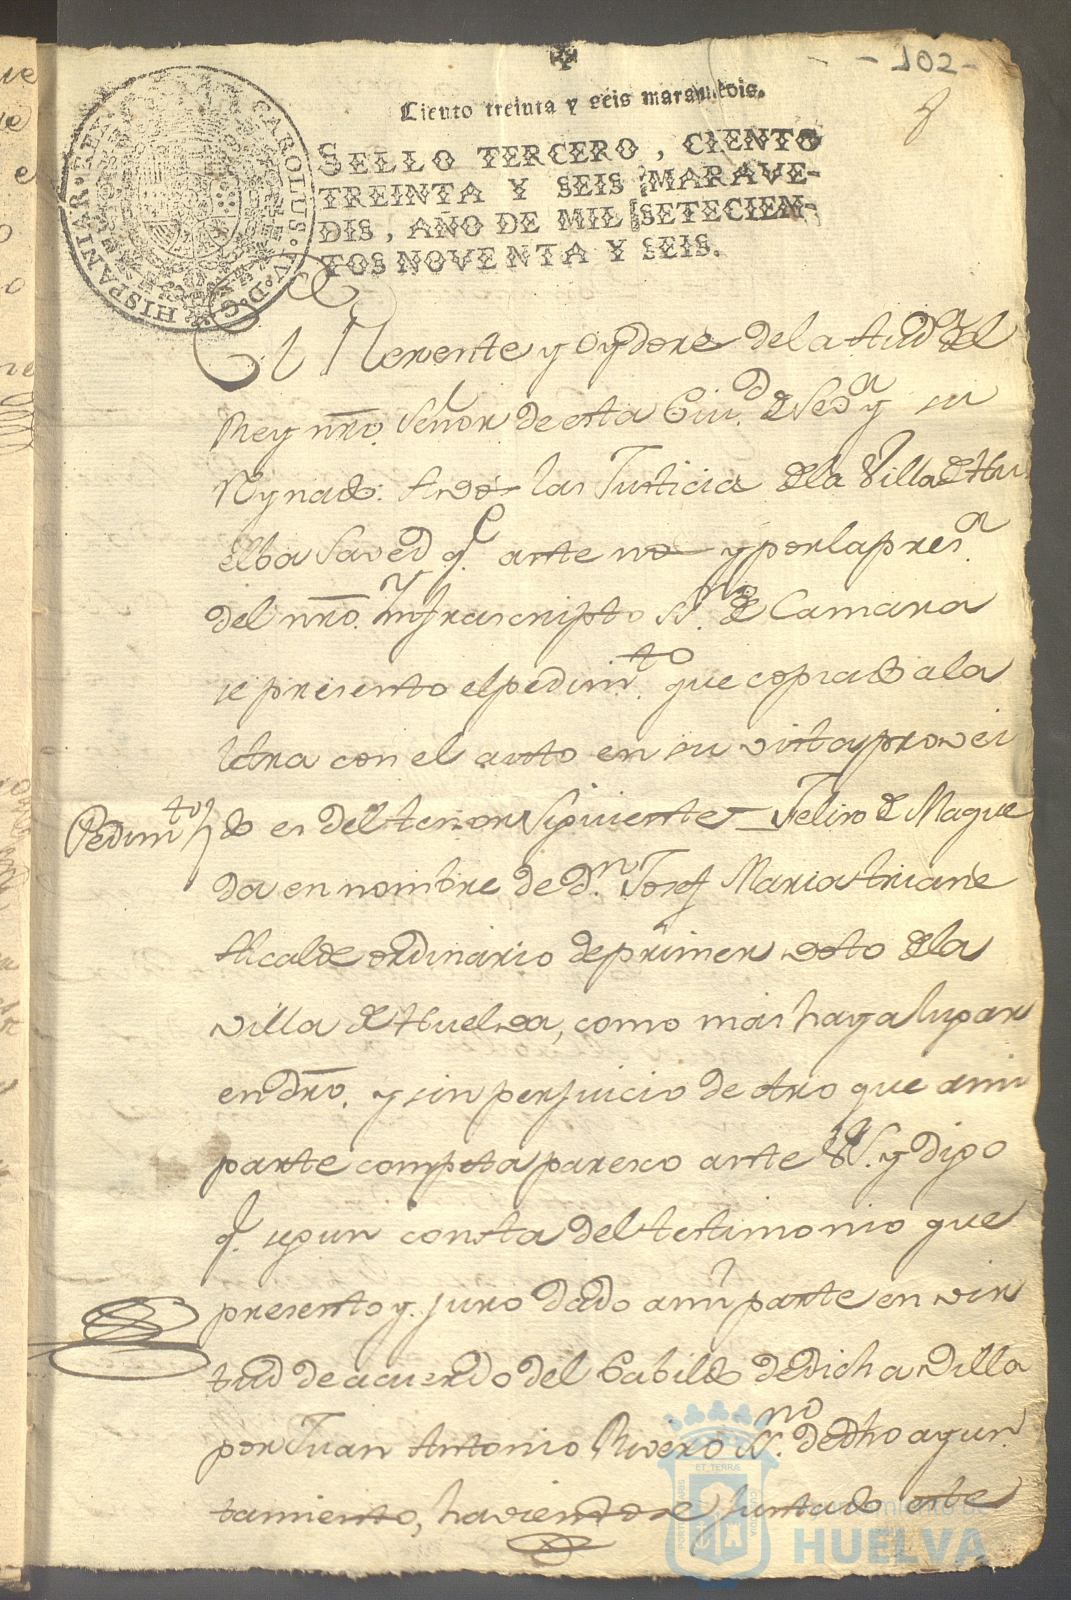 - 102 -
Ciento treinta y seis maravedis.
SELLO TERCERO, CIENTO
TREINTA Y SEIS MARAVE-
DIS, AÑO DE MIL SETECIEN-
TOS NOVENTA Y SEIS.
CAROLUS·IV·D·G·HISPANIAR·REX
El Rexente y oydores de la Aud.ª del
Rey nro. Señor de esta Ciu.d de Sev.ª y su
Reynado: A vos las Justicia de la Villa de Hu
elba Saved q.e ante nos y por la pres.ª
del nro. Infrascripto SS.no de Camara
se presento el pedim.to que copiado a la
letra con el auto en su vista provei
Pedim.to
do es del tenor siguiente = Felix de Maque
da en nombre de D.n Josef Maria Triane
Alcalde ordinario de primer voto de la
villa de Huelva, como mas haya lugar
en dro. y sin perjuicio de otro que a mi
parte competa paresco ante V.S. y digo
q.e segun consta del testimonio que
presento y juro dado a mi parte en vir
tud de acuerdo del Cabildo de dicha villa
por Juan Antonio Rivero SS.no de dho ayun
tamiento, haviendose juntado este
Ayuntamiento de
HUELVA